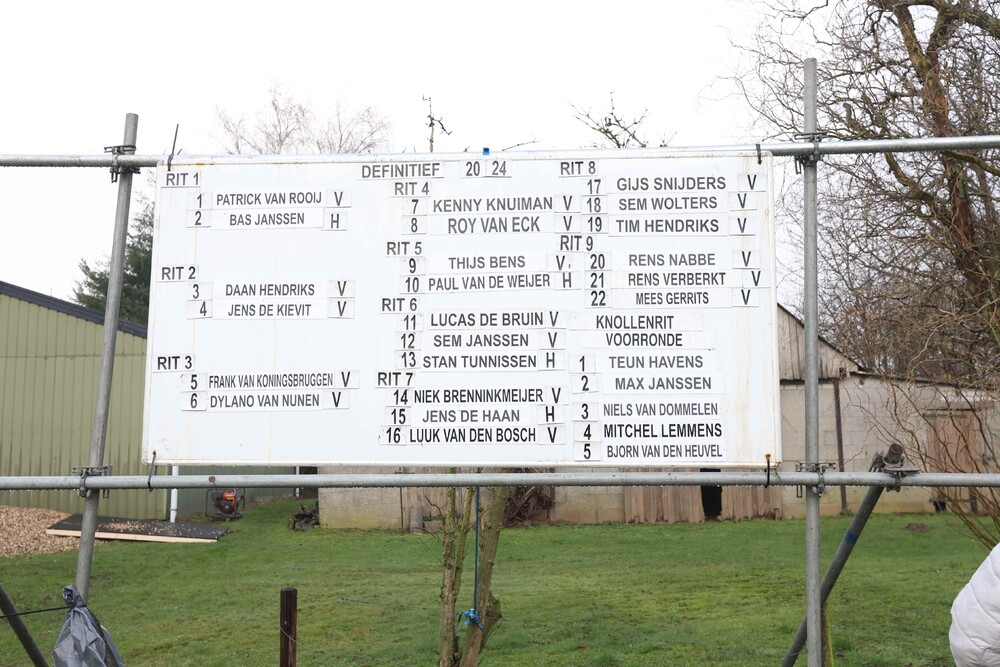 DEFINITIEF 20 24
RIT 1
1 PATRICK VAN ROOIJ V
2 BAS JANSSEN H
RIT 2
3 DAAN HENDRIKS V
4 JENS DE KIEVIT V
RIT 3
5 FRANK VAN KONINGSBRUGGEN V
6 DYLANO VAN NUNEN V
RIT 4
7 KENNY KNUIMAN V
8 ROY VAN ECK V
RIT 5
9 THIJS BENS V
10 PAUL VAN DE WEIJER H
RIT 6
11 LUCAS DE BRUIN V
12 SEM JANSSEN V
13 STAN TUNNISSEN H
RIT 7
14 NIEK BRENNINKMEIJER V
15 JENS DE HAAN H
16 LUUK VAN DEN BOSCH V
RIT 8
17 GIJS SNIJDERS V
18 SEM WOLTERS V
19 TIM HENDRIKS V
RIT 9
20 RENS NABBE V
21 RENS VERBERKT V
22 MEES GERRITS V
KNOLLENRIT
VOORRONDE
1 TEUN HAVENS
2 MAX JANSSEN
3 NIELS VAN DOMMELEN
4 MITCHEL LEMMENS
5 BJORN VAN DEN HEUVEL